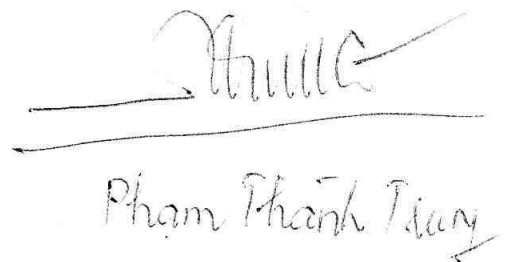 Phạm Thành Trung